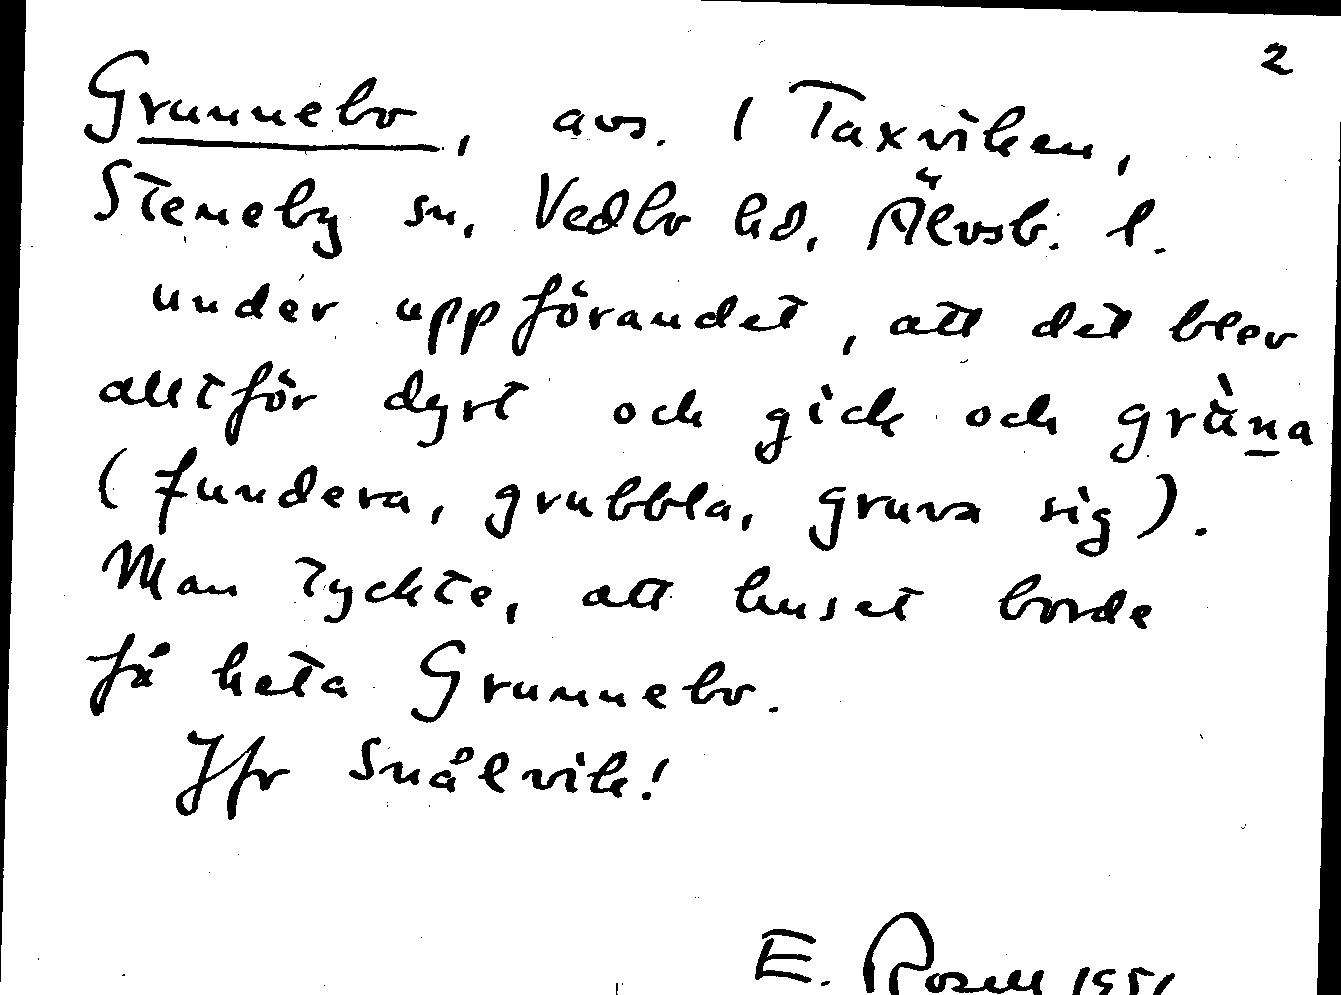 2
Grunnebo, avs. 1 Taxviken,
Steneby sn, Vedbo hd, Älvsb. l.
under uppförandet, att det blev
alltför dyrt och gick och grùna
(fundera, grubbla, gruva sig).
Man tyckte, att huset borde
få heta Grunnebo.
Jfr Snålvik!
E. Rosell 1951